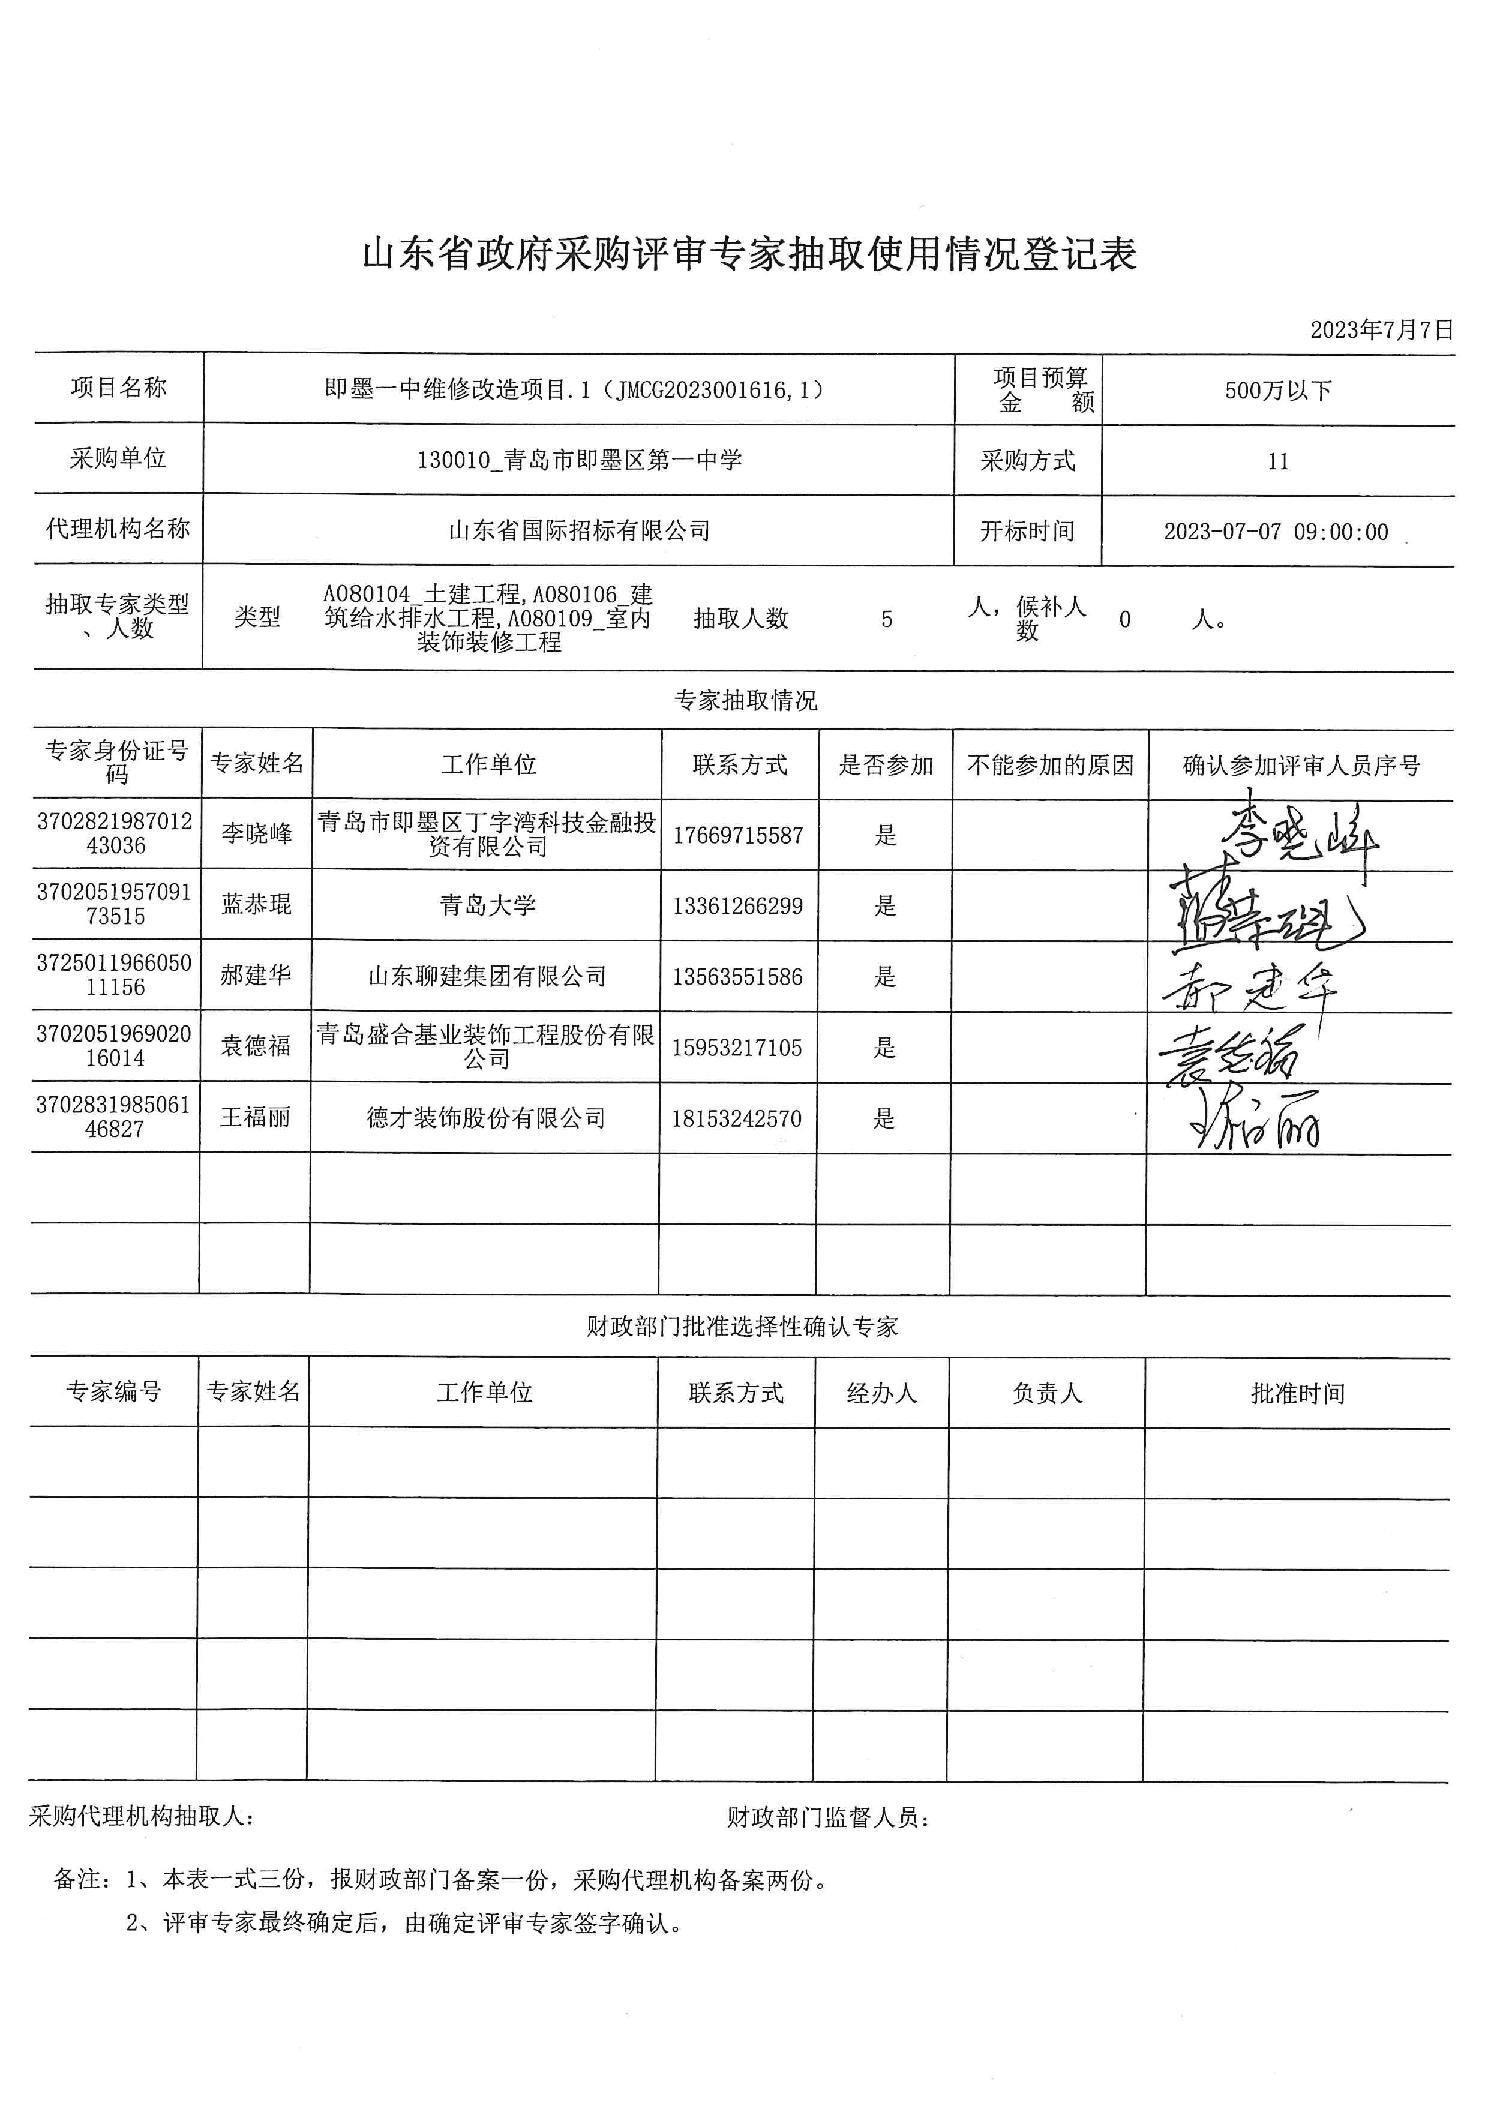 山东省政府采购评审专家抽取使用情况登记表
2023年7月7日
项目名称 即墨一中维修改造项目.1（JMCG2023001616,1） 项目预算金 额 500万以下
采购单位 130010_青岛市即墨区第一中学 采购方式 11
代理机构名称 山东省国际招标有限公司 开标时间 2023-07-07 09:00:00
抽取专家类型、人数 类型 A080104_土建工程,A080106_建筑给水排水工程,A080109_室内装饰装修工程 抽取人数 5 人，候补人数 0 人。
专家抽取情况
专家身份证号码 专家姓名 工作单位 联系方式 是否参加 不能参加的原因 确认参加评审人员序号
370282198701243036 李晓峰 青岛市即墨区丁字湾科技金融投资有限公司 17669715587 是 李晓峰
370205195709173515 蓝恭琨 青岛大学 13361266299 是 蓝恭琨
372501196605011156 郝建华 山东聊建集团有限公司 13563551586 是 郝建华
370205196902016014 袁德福 青岛盛合基业装饰工程股份有限公司 15953217105 是 袁德福
370283198506146827 王福丽 德才装饰股份有限公司 18153242570 是 王福丽
财政部门批准选择性确认专家
专家编号 专家姓名 工作单位 联系方式 经办人 负责人 批准时间
采购代理机构抽取人： 财政部门监督人员：
备注：1、本表一式三份，报财政部门备案一份，采购代理机构备案两份。
2、评审专家最终确定后，由确定评审专家签字确认。